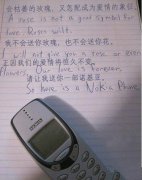 会枯萎的玫瑰，又怎配成为爱情的象征。
A rose is not a good symbol for
love. Roses wilt.
我不会送你玫瑰，也不会送你花。
I will not give you a rose or even
正因我们的爱情将恒久不变。
flowers. Our love is forever.
请让我送你一部诺基亚。
So here is a Nokia Phone
NOKIA